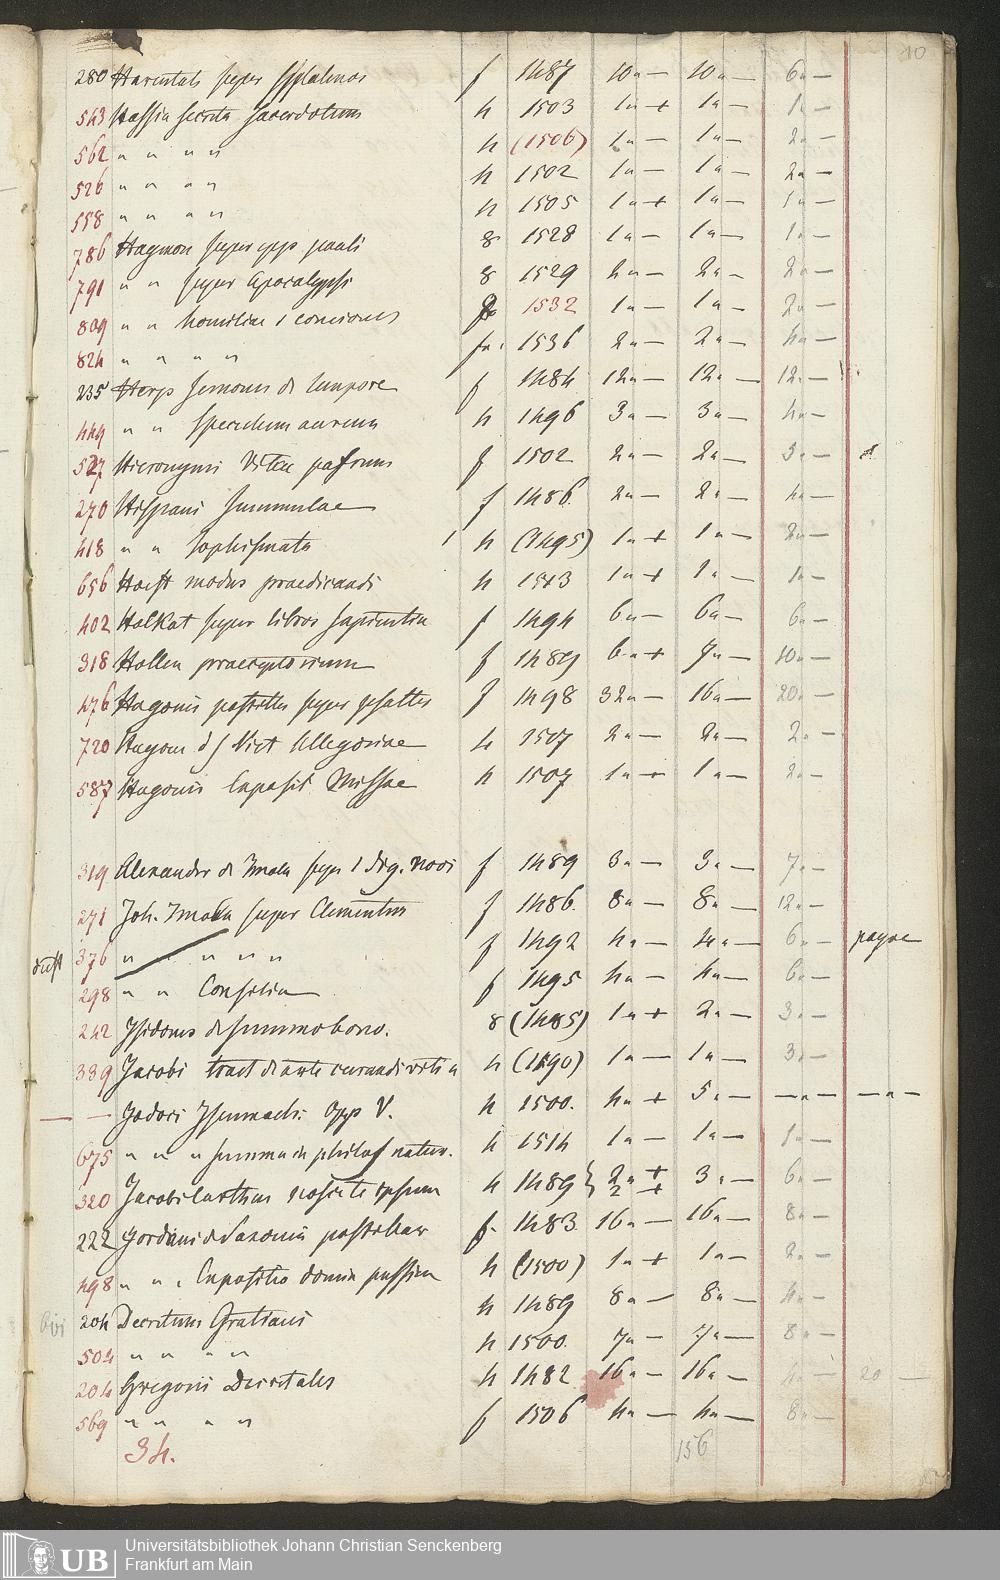 10
280 Harentals super Psalmos f 1487 10 " — 10 " — 6 " —
543 Hassia secreta sacerdotum 4 1503 1 " + 1 " — 1 " —
562 " " " " 4 (1506) 1 " — 1 " — 2 " —
526 " " " " 4 1502 1 " — 1 " — 2 " —
558 " " " " 4 1505 1 " + 1 " — 1 " —
786 Haymon super epp pauli 8 1528 1 " — 1 " — 1 " —
791 " " super Apocalypsi 8 1529 2 " — 2 " — 2 " —
809 " " homiliae s conciones 1532 1 " — 1 " — 2 " —
824 " " " " 1536 2 " — 2 " — 4 " —
235 Herp sermones de tempore f 1484 12 " — 12 " — 12 " —
449 " " Speculum aureum 4 1496 3 " — 3 " — 4 " —
527 Hieronymi Vitae patrum f 1502 2 " — 2 " — 3 " —
270 Hispani Summulae f 1486 2 " — 2 " — 4 " —
418 " " Sophismata 4 (1495) 1 " + 1 " — 2 " —
656 modus praedicandi 4 1513 1 " + 1 " — 1 " —
402 Holkot super libros sapientiae f 1494 6 " — 6 " — 6 " —
318 Hollen praeceptorium f 1489 6 " + 7 " — 10 " —
476 Hugonis postilla super f 1498 32 " — 16 " — 20 " —
720 Hugon d S Vict Allegoriae 4 1517 2 " — 2 " — 2 " —
587 Hugonis Exposit Missae 4 1507 1 " + 1 " — 2 " —
319 Alexander de Imola super 1 dig. novi f 1489 3 " — 3 " — 7 " —
271 Joh. Imola super Clementin f 1486 8 " — 8 " — 12 " —
376 " " " " " f 1492 4 " — 4 " — 6 " —
298 " " Consilia f 1495 4 " — 4 " — 6 " —
242 Isidorus de summo bono. 8 (1485) 1 " + 2 " — 3 " —
389 Jacobi tract de arte curandi vitia 4 (1490) 1 " — 1 " — 3 " —
— — Jodoci Isennach: Opp V. 4 1500. 4 " + 5 " — — " — — " —
675 " " " summa in philos natur. 4 1514 1 " — 1 " — 1 " —
320 4 1489 } 2 " + 3 " — 6 " —
2 +
222 Jordani de Saxonia postillae f. 1483 16 " — 16 " — 8 " —
498 " " " Expositio domin passion 4 (1500) 1 " + 1 " — 2 " —
204 Decretum Gratiani 4 1489 8 " — 8 " — 4 " —
504 " " " " 4 1500. 7 " — 7 " — 8 " —
204 Gregorii Decretales 4 1482 16 " — 16 " — 20 —
569 " " " " f 1506 4 " — 4 " — 8 " —
34. 156
UB Universitätsbibliothek Johann Christian Senckenberg
Frankfurt am Main